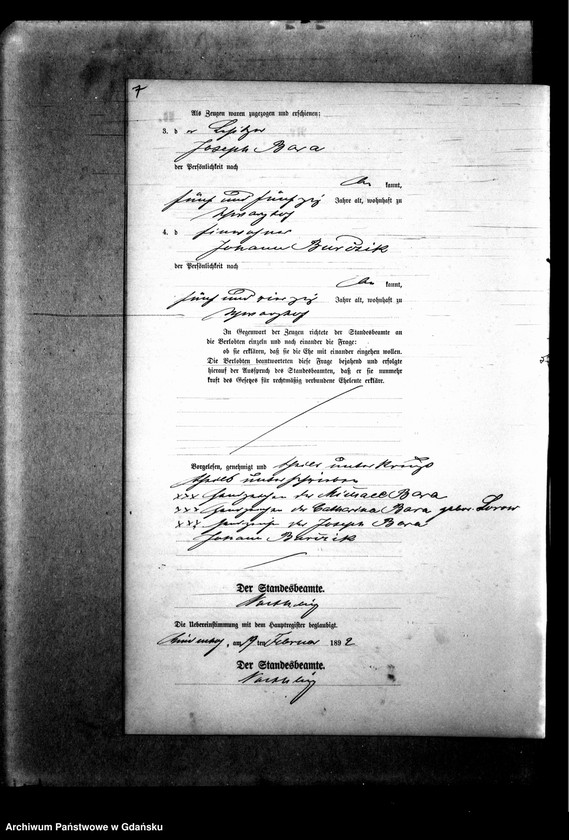 7
Als Zeugen waren zugezogen und erschienen:
3. d er Besitzer
Joseph Bara
der Persönlichkeit nach
be kannt,
fünf und fünfzig Jahre alt, wohnhaft zu
4. d Einwohner
Johann Burczik
der Persönlichkeit nach
be kannt,
fünf und vierzig Jahre alt, wohnhaft zu
In Gegenwart der Zeugen richtete der Standesbeamte an
die Verlobten einzeln und nach einander die Frage:
ob sie erklären, daß sie die Ehe mit einander eingehen wollen.
Die Verlobten beantworteten diese Frage bejahend und erfolgte
hierauf der Ausspruch des Standesbeamten, daß er sie nunmehr
kraft des Gesetzes für rechtmäßig verbundene Eheleute erkläre.
Vorgelesen, genehmigt und theils unterkreuzt
theils unterschrieben
xxx Handzeichen des Michael Bara
xxx Handzeichen der Catharina Bara gebor.
xxx Handzeichen des Joseph Bara
Johann Burczik
Der Standesbeamte.
Die Uebereinstimmung mit dem Hauptregister beglaubigt.
, am 9 ten Februar 1892
Der Standesbeamte.
Archiwum Państwowe w Gdańsku